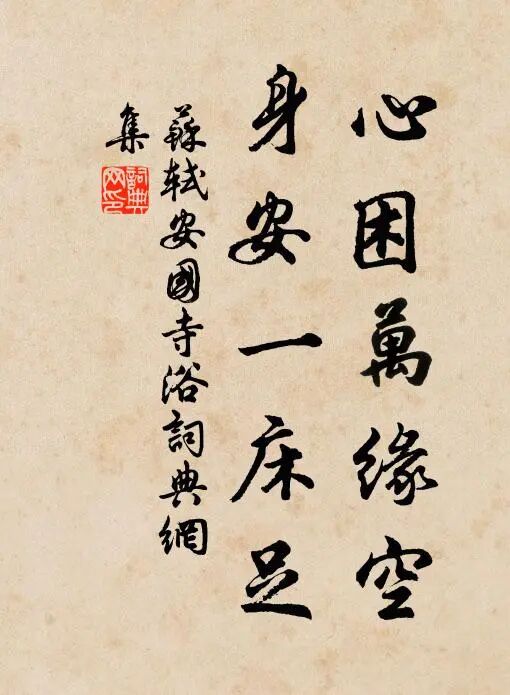 心困萬緣空
身安一床足
蘇軾安國寺浴詞典網
集
詞典網印